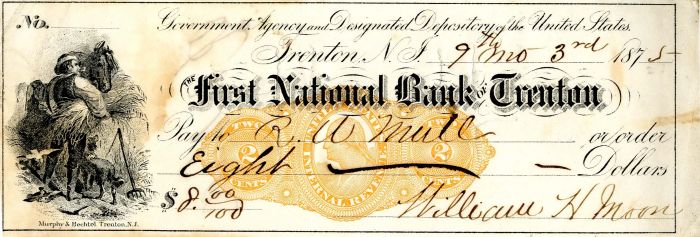 No.
Government Agency and Designated Depository of the United States.
Trenton, N.J. 9th mo 3rd 1875
THE First National Bank OF Trenton
Pay to R. A. Mull or order
Eight — Dollars
TWO CENTS 2 INTERNAL REVENUE TWO CENTS 2
$8.00/100 William H Moon
Murphy & Bechtel Trenton, N.J.